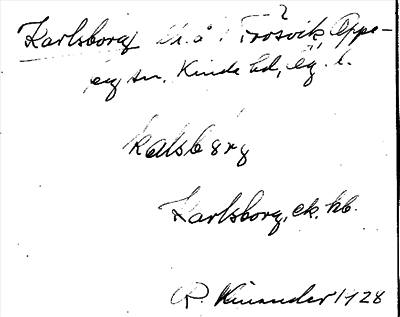 Karlsborg u. å. Trosvik, Oppe-
by sn, Kinda hd, Ög. l.
kalsbørg
Karlsborg, ek. kb.
R. Kinander 1928